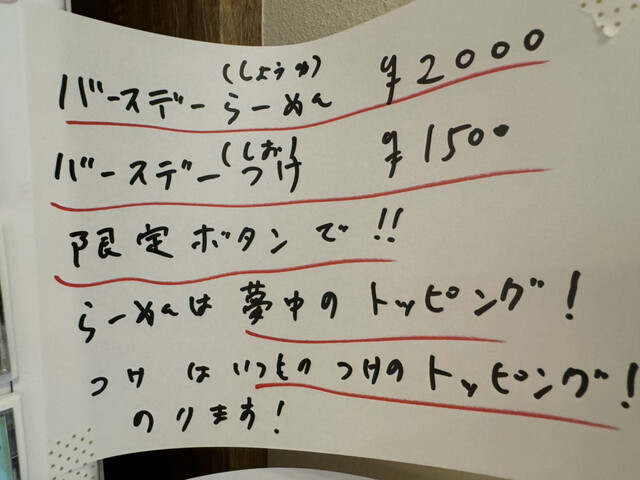 バースデー(しょうゆ)らーめん ¥2000
バースデー(しお)つけ ¥1500
限定ボタンで!!
らーめんは夢中のトッピング!
つけはいつものつけのトッピング!
のります!